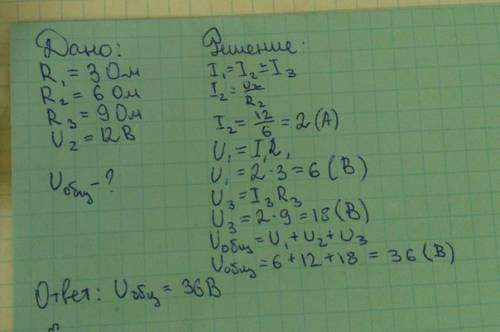 Дано:
R₁ = 3 Ом
R₂ = 6 Ом
R₃ = 9 Ом
U₂ = 12 В
Uобщ - ?
Решение:
I₁ = I₂ = I₃
I₂ = U₂/R₂
I₂ = 12/6 = 2 (А)
U₁ = I₁R₁
U₁ = 2 · 3 = 6 (В)
U₃ = I₃R₃
U₃ = 2 · 9 = 18 (В)
Uобщ = U₁ + U₂ + U₃
Uобщ = 6 + 12 + 18 = 36 (В)
Ответ: Uобщ = 36В